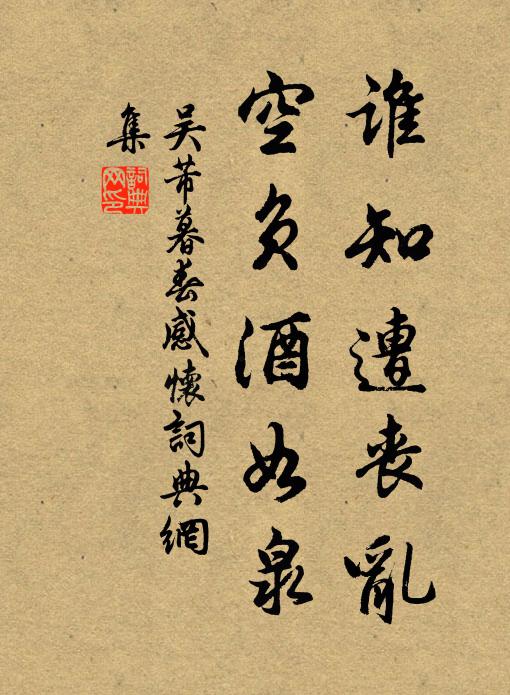 誰知遭喪亂
空負酒如泉
吴芾暮春感懷詞典網
集
詞典
网印